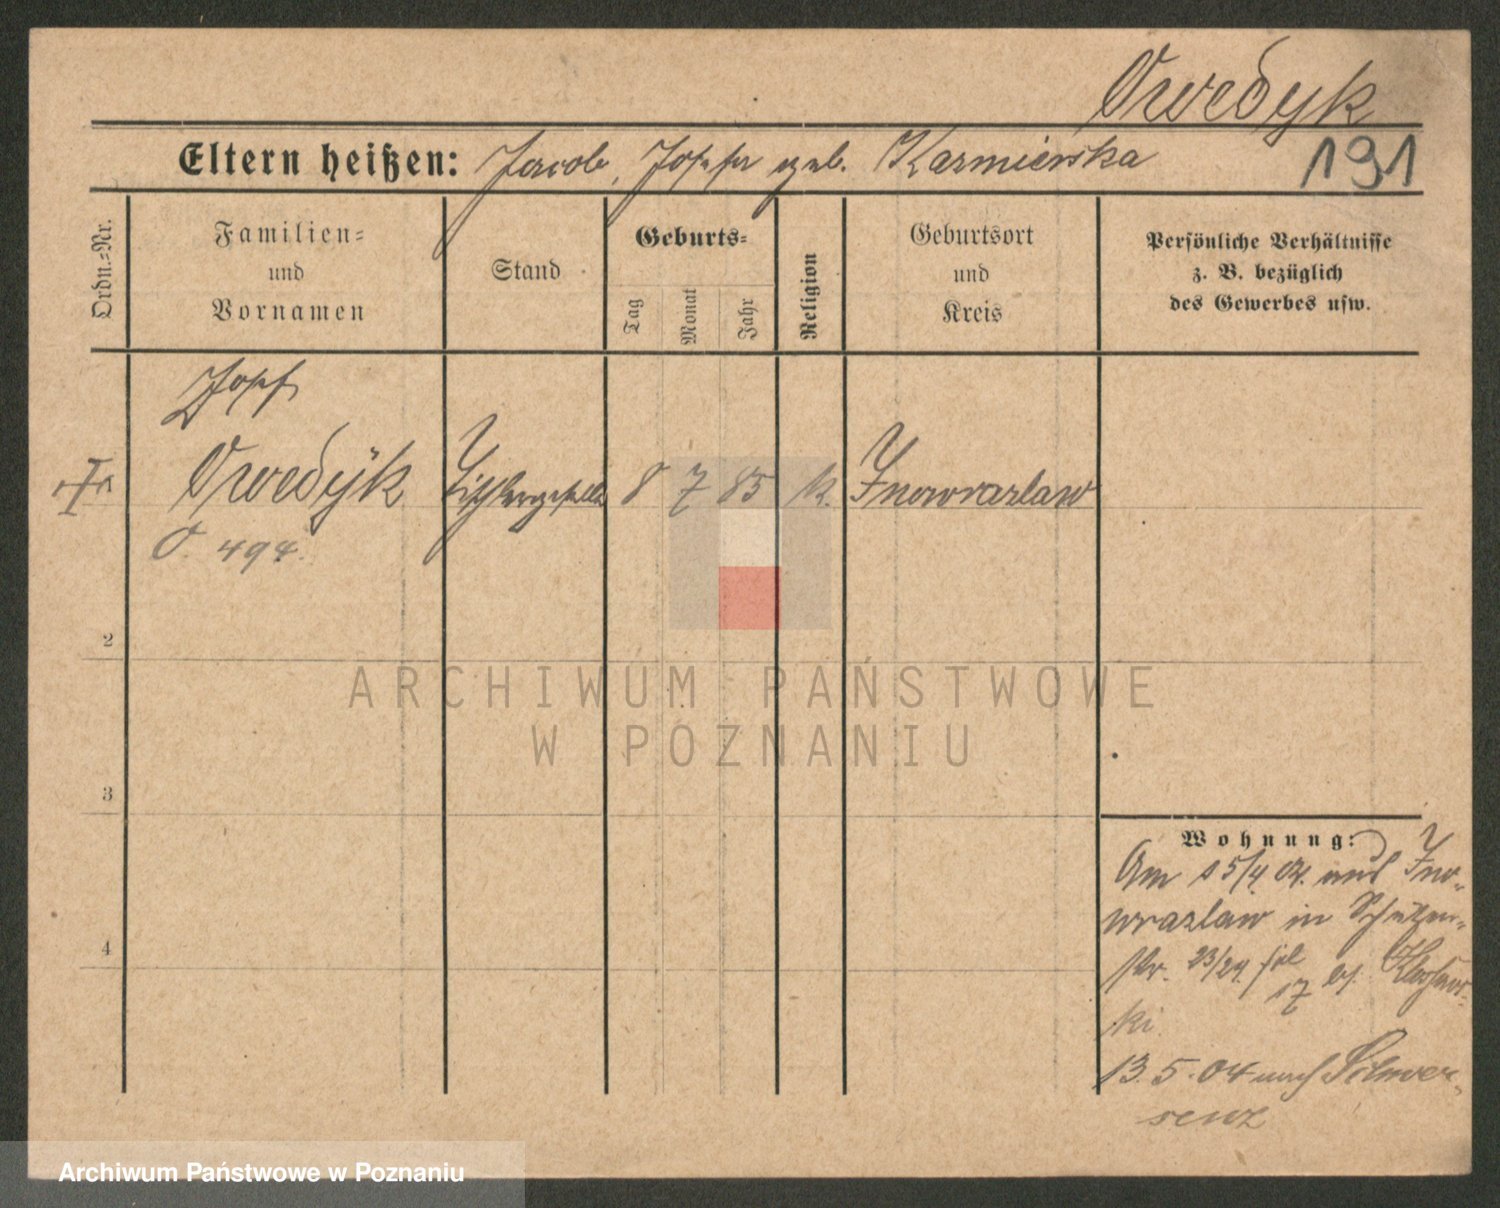 Owedyk
Eltern heißen: Jacob, Josefa geb. Kazmierska
191
Ordn.-Nr.
Familien-
und
Vornamen
Stand
Geburts-
Tag
Monat
Jahr
Religion
Geburtsort
und
Kreis
Persönliche Verhältnisse
z. B. bezüglich
des Gewerbes usw.
Josef
Owedyk Tischlergeselle 8 7 85 k. Inowrazlaw
O. 494.
2
3
4
Wohnung:
Am 15/4 04. aus Ino-
wrazlaw in Schützen-
str. 23/24 bei
17
ki
13.5.04 nach Schwer-
senz
ARCHIWUM PAŃSTWOWE
W POZNANIU
Archiwum Państwowe w Poznaniu